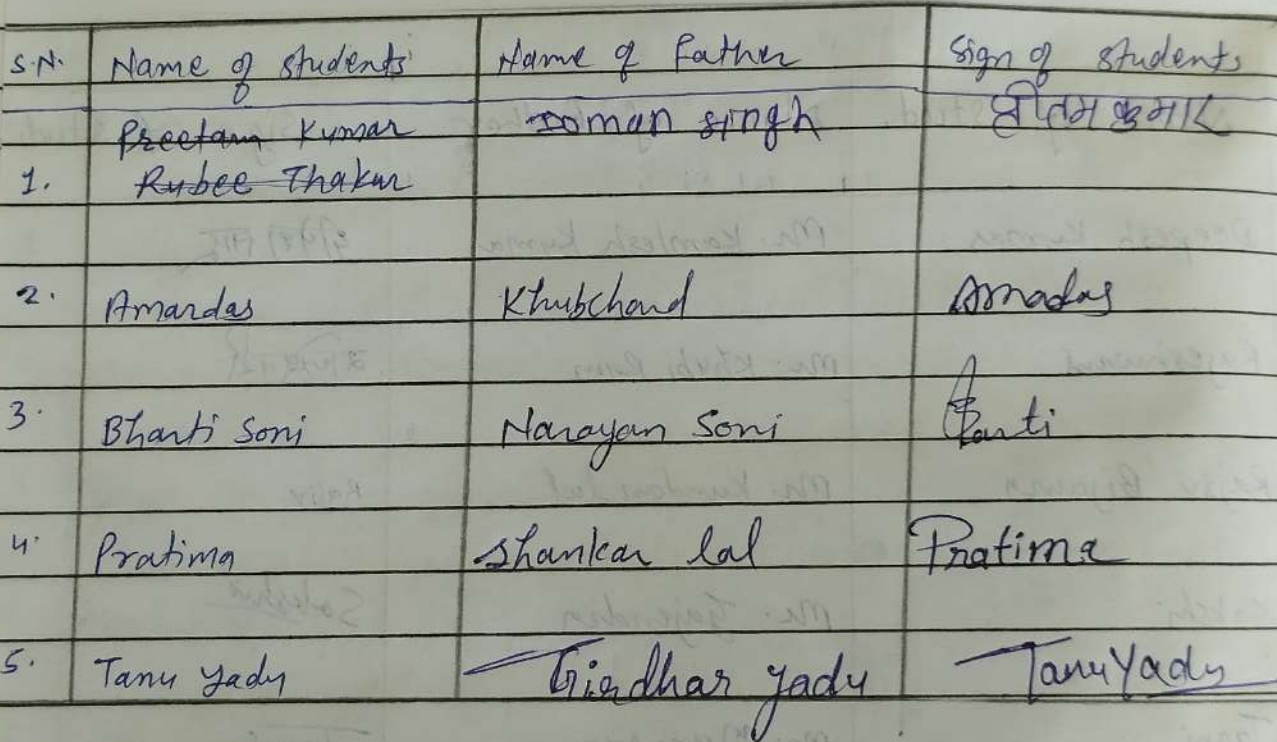 S.N. Name of students Name of Father Sign of students
Preetam Kumar Doman singh प्रीतम कुमार
1. Rubee Thakur
2. Amardas Khubchand Amadas
3. Bharti Soni Narayan Soni
4. Pratima Shankar lal Pratima
5. Tanu Yadu Girdhar Yadu Tanu Yadu